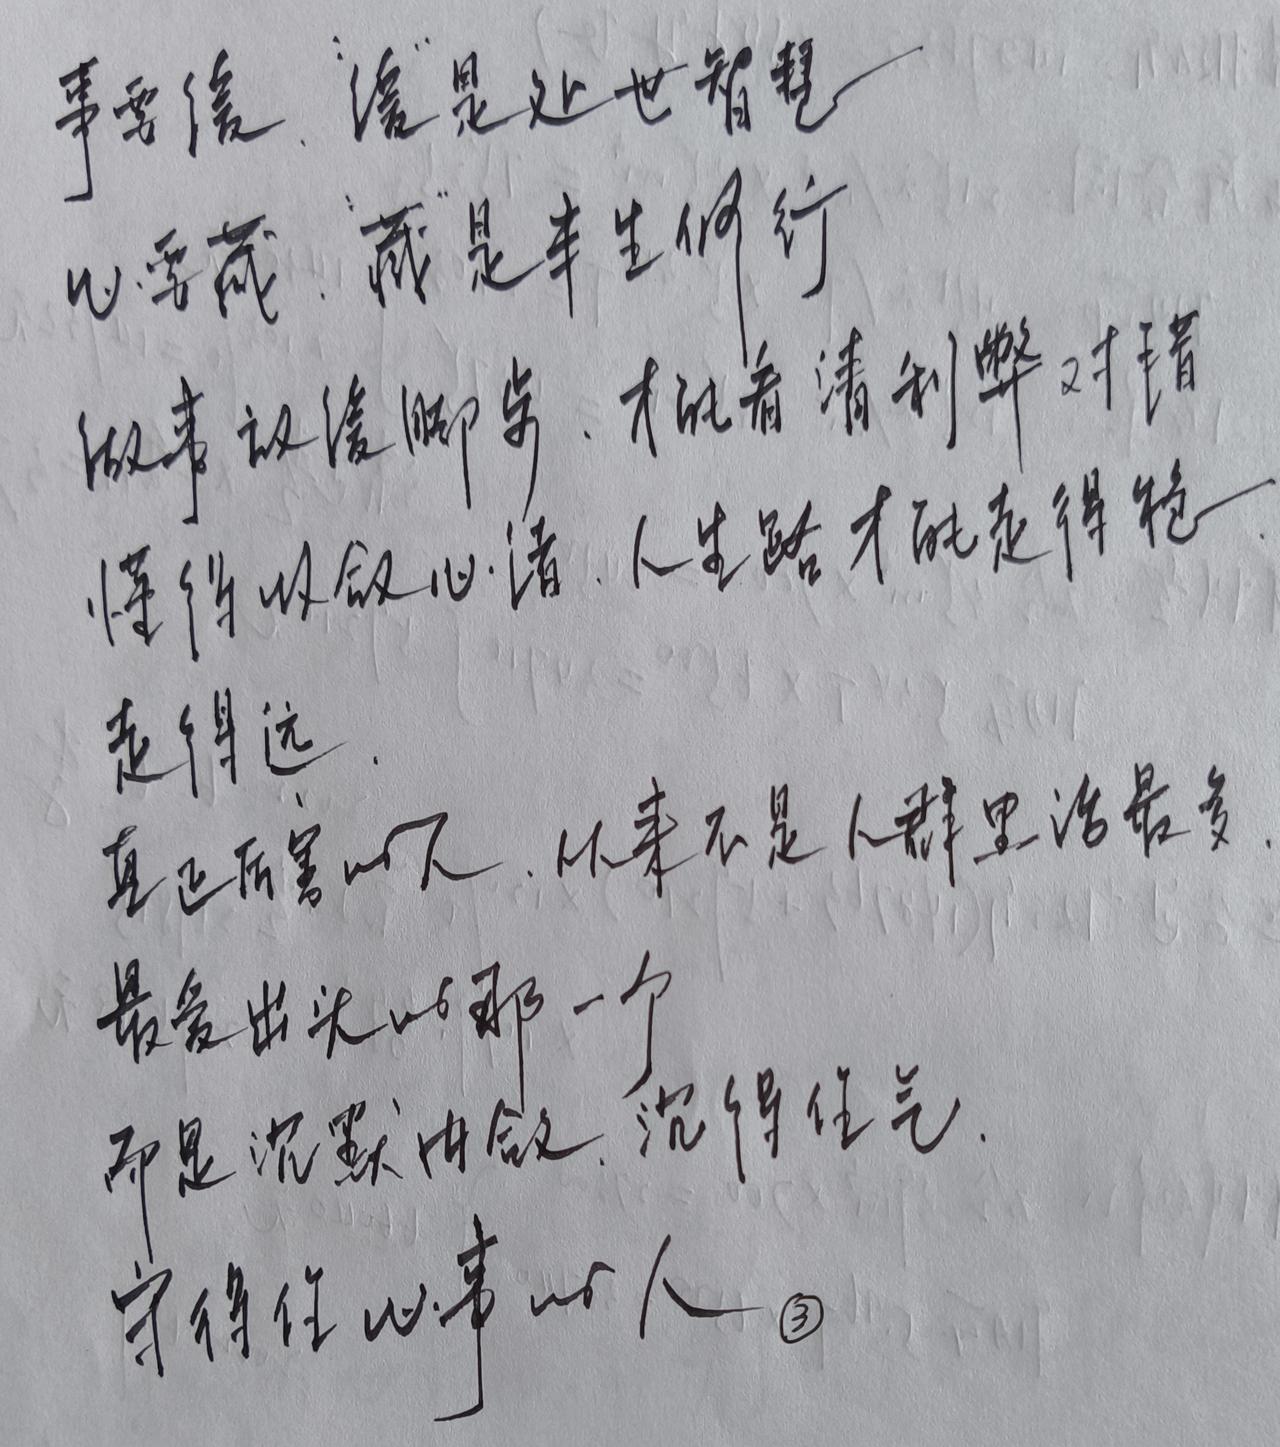 事要缓、“缓”是处世智慧
心要藏、“藏”是半生修行
做事放缓脚步、才能看清利弊对错
懂得收敛心绪、人生路才能走得稳、
走得远.
真正厉害的人、从来不是人群里话最多、
最爱出头的那一个
而是沉默内敛、沉得住气、
守得住心事的人 ③